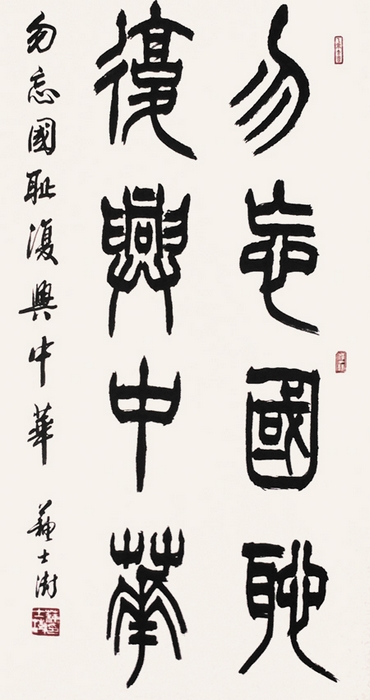 勿忘國恥
復興中華
勿忘國耻復興中華 蘇士澍